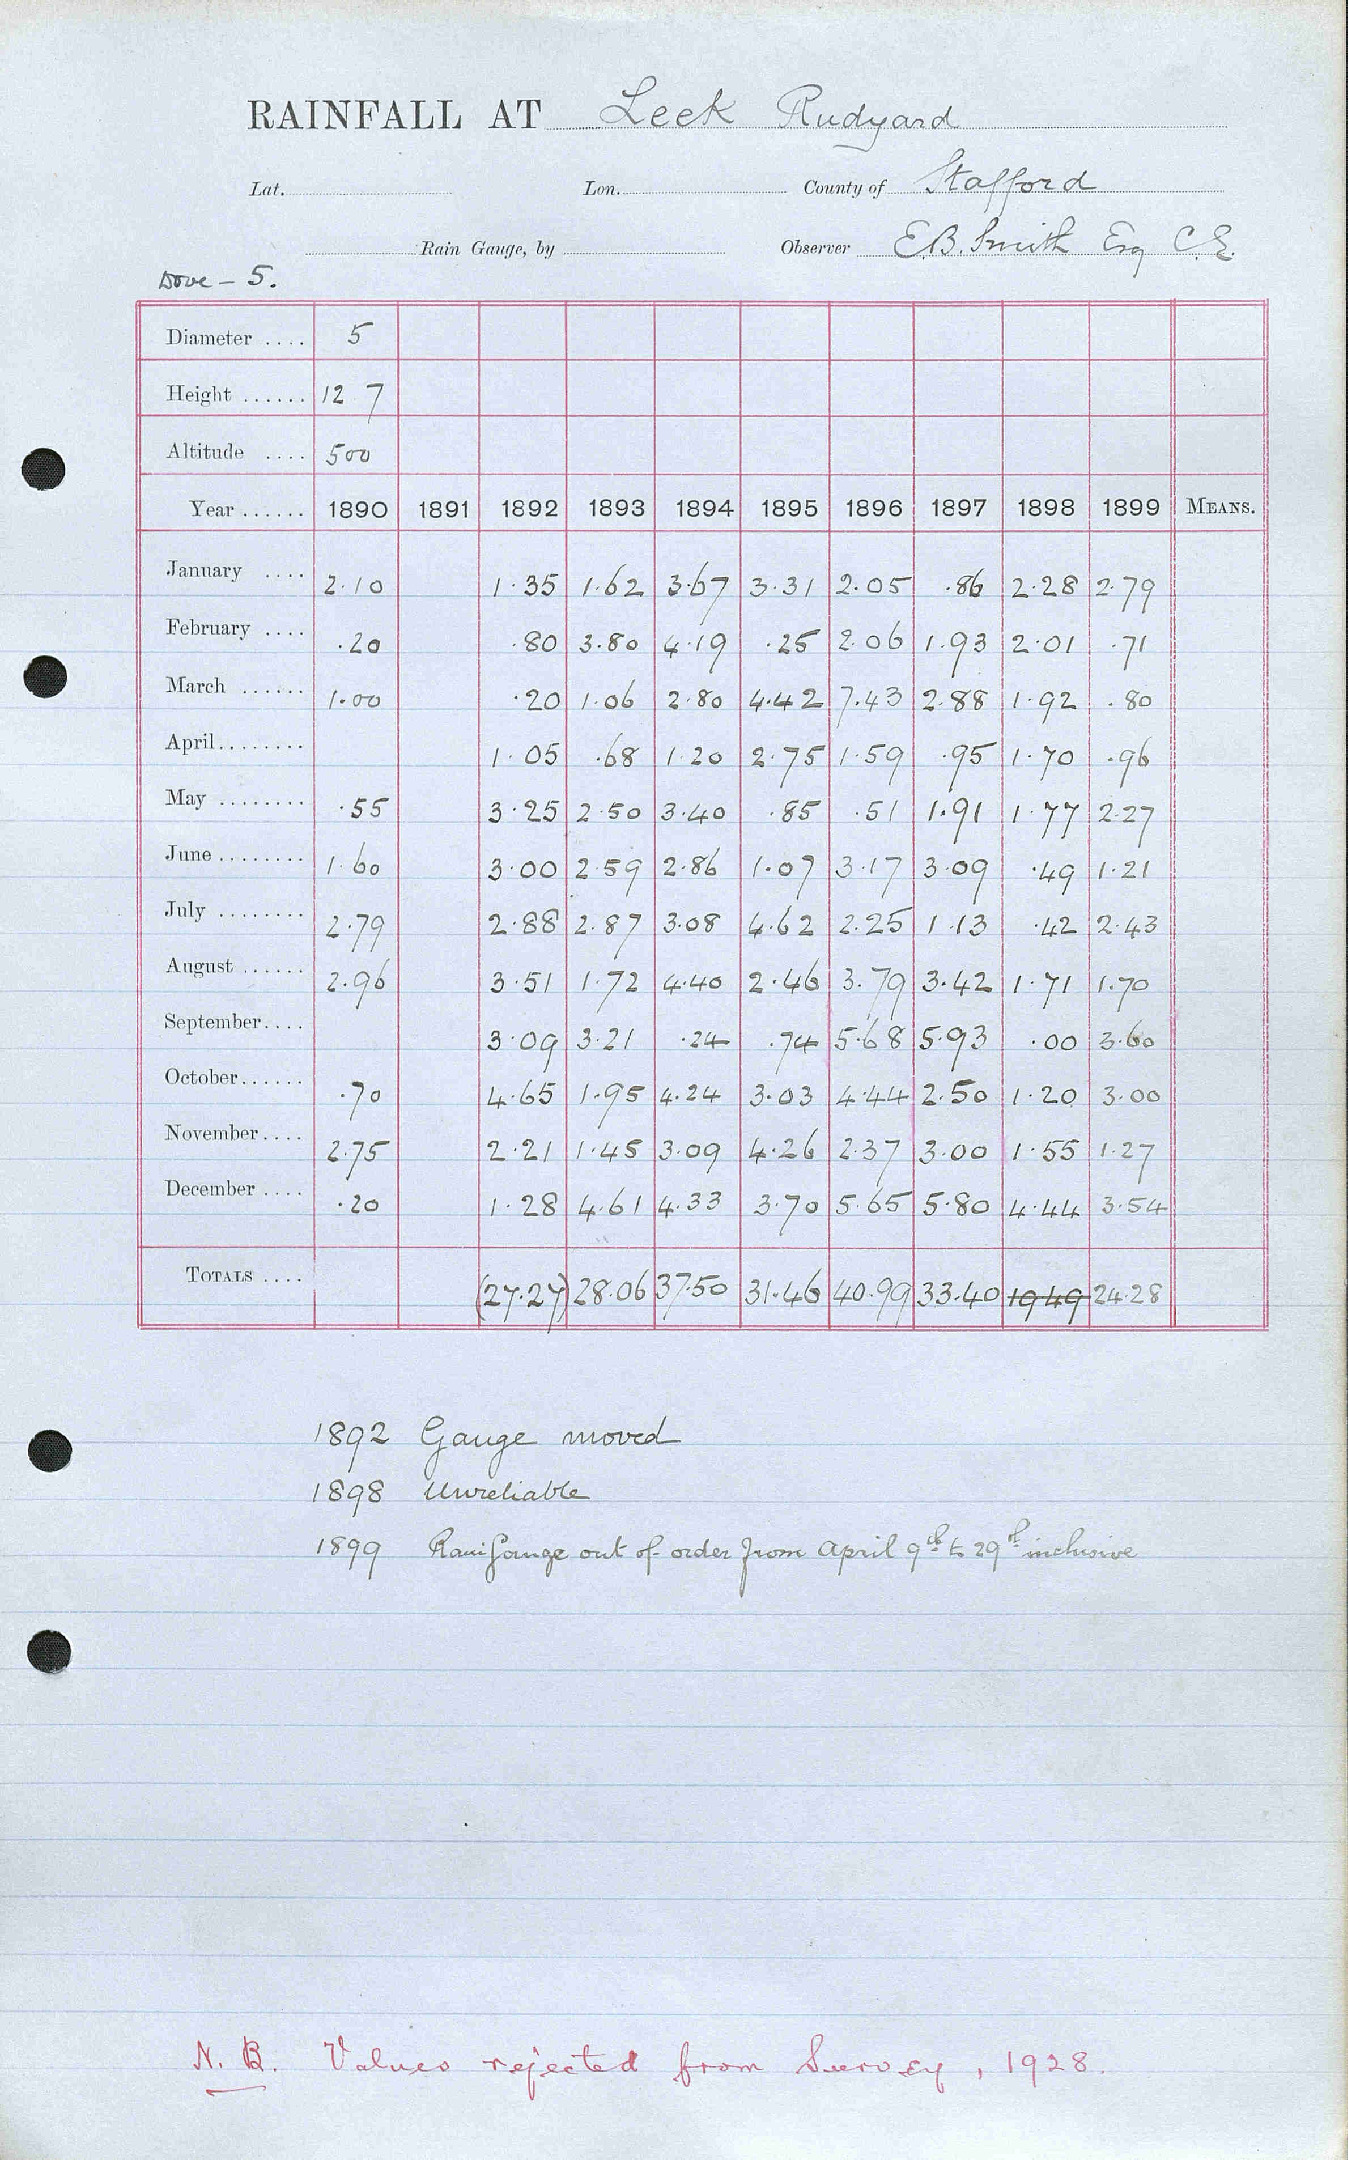 RAINFALL AT Leek Rudyard
Lat. Lon. County of Stafford
Rain Gauge, by Observer E.B. Smith Esq C.E.
Dove – 5.
Diameter .... 5
Height ...... 12 7
Altitude .... 500
Year ...... 1890 1891 1892 1893 1894 1895 1896 1897 1898 1899 MEANS.
January .... 2.10 1.35 1.62 3.67 3.31 2.05 .86 2.28 2.79
February .... .20 .80 3.80 4.19 .25 2.06 1.93 2.01 .71
March ...... 1.00 .20 1.06 2.80 4.42 7.43 2.88 1.92 .80
April........ 1.05 .68 1.20 2.75 1.59 .95 1.70 .96
May ........ .55 3.25 2.50 3.40 .85 .51 1.91 1.77 2.27
June ........ 1.60 3.00 2.59 2.86 1.07 3.17 3.09 .49 1.21
July ........ 2.79 2.88 2.87 3.08 4.62 2.25 1.13 .42 2.43
August ...... 2.96 3.51 1.72 4.40 2.46 3.79 3.42 1.71 1.70
September.... 3.09 3.21 .24 .74 5.68 5.93 .00 3.60
October...... .70 4.65 1.95 4.24 3.03 4.44 2.50 1.20 3.00
November.... 2.75 2.21 1.45 3.09 4.26 2.37 3.00 1.55 1.27
December .... .20 1.28 4.61 4.33 3.70 5.65 5.80 4.44 3.54
TOTALS .... (27.27) 28.06 37.50 31.46 40.99 33.40 19.49 24.28
1892 Gauge moved
1898 Unreliable
1899 Rain Gauge out of order from April 9th to 29th inclusive
N.B. Values rejected from Survey, 1928.